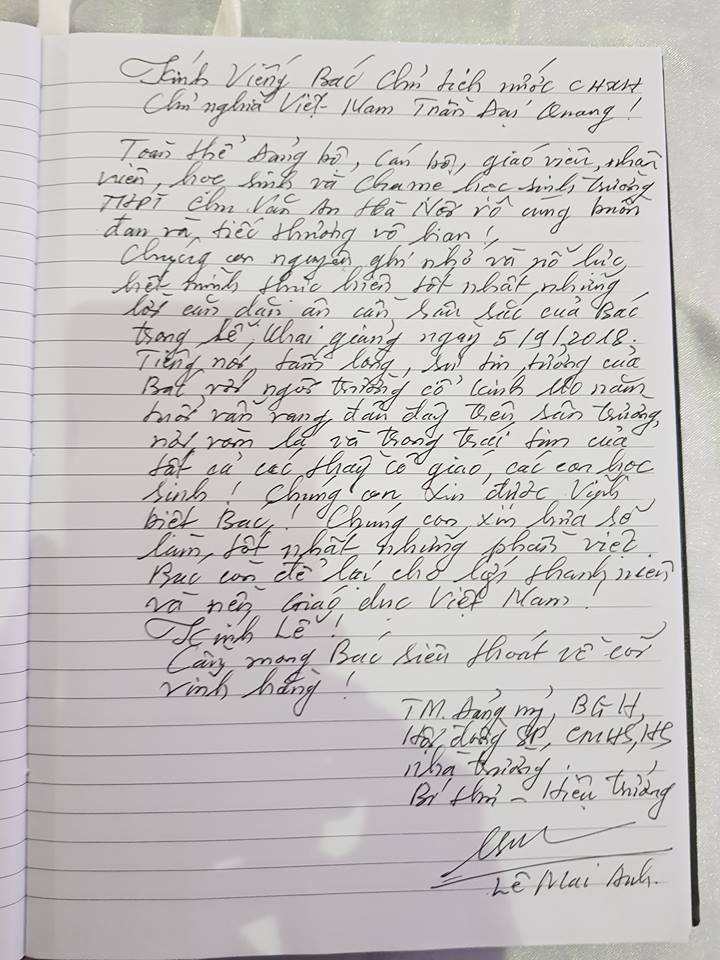 Kính Viếng Bác Chủ tịch nước CHXH
Chủ nghĩa Việt Nam Trần Đại Quang!
Toàn thể Đảng bộ, cán bộ, giáo viên, nhân
viên, học sinh và Cha mẹ học sinh trường
THPT Chu Văn An Hà Nội vô cùng buồn
đau và tiếc thương vô hạn!
Chúng con nguyện ghi nhớ và nỗ lực
hết mình thực hiện tốt nhất những
lời căn dặn ân cần sâu sắc của Bác
trong Lễ Khai giảng ngày 5/9/2018.
Tiếng nói tấm lòng, sự tin tưởng của
Bác với ngôi trường cổ kính 110 năm
tuổi vẫn vang đâu đây trên sân trường,
nơi vòm lá và trong trái tim của
tất cả các thầy cô giáo, các con học
sinh! Chúng con xin được Vĩnh
biệt Bác! Chúng con xin hứa sẽ
làm tốt nhất những phần việc
Bác còn để lại cho lớp thanh niên
và nền Giáo dục Việt Nam!
Kính Lễ!
Cầu mong Bác siêu thoát về cõi
vĩnh hằng!
TM. Đảng uỷ, BGH,
Hội đồng SP, CMHS, HS
nhà trường.
Bí thư - Hiệu trưởng
Lê Mai Anh.